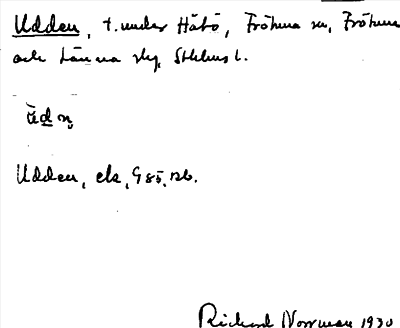 Udden, t. under Häbö, Frötuna sn, Frötuna
och Länna skg, Sthlms l.
ud n̥
Udden, ek, G 85, rsb.
Richard Norrman 1930